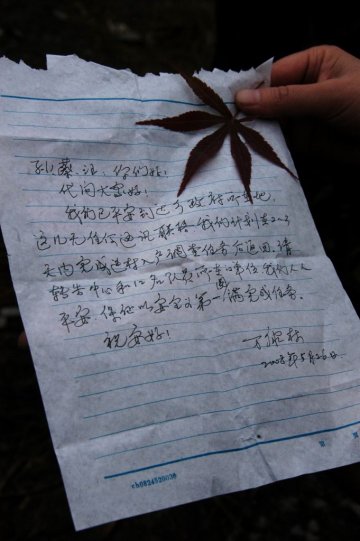 孔、蔡、汪，你们好！
代问大家好！
我们已平安到达乡政府所在地，
这儿无任何通讯联络，我们计划在2-3
天内完成进村入户调查任务后返回，请
转告中心和12名队员所在单位我们人人
平安，保证以安全为第一圆满完成任务。
祝安好！
2008年5月26日
ch0824520036